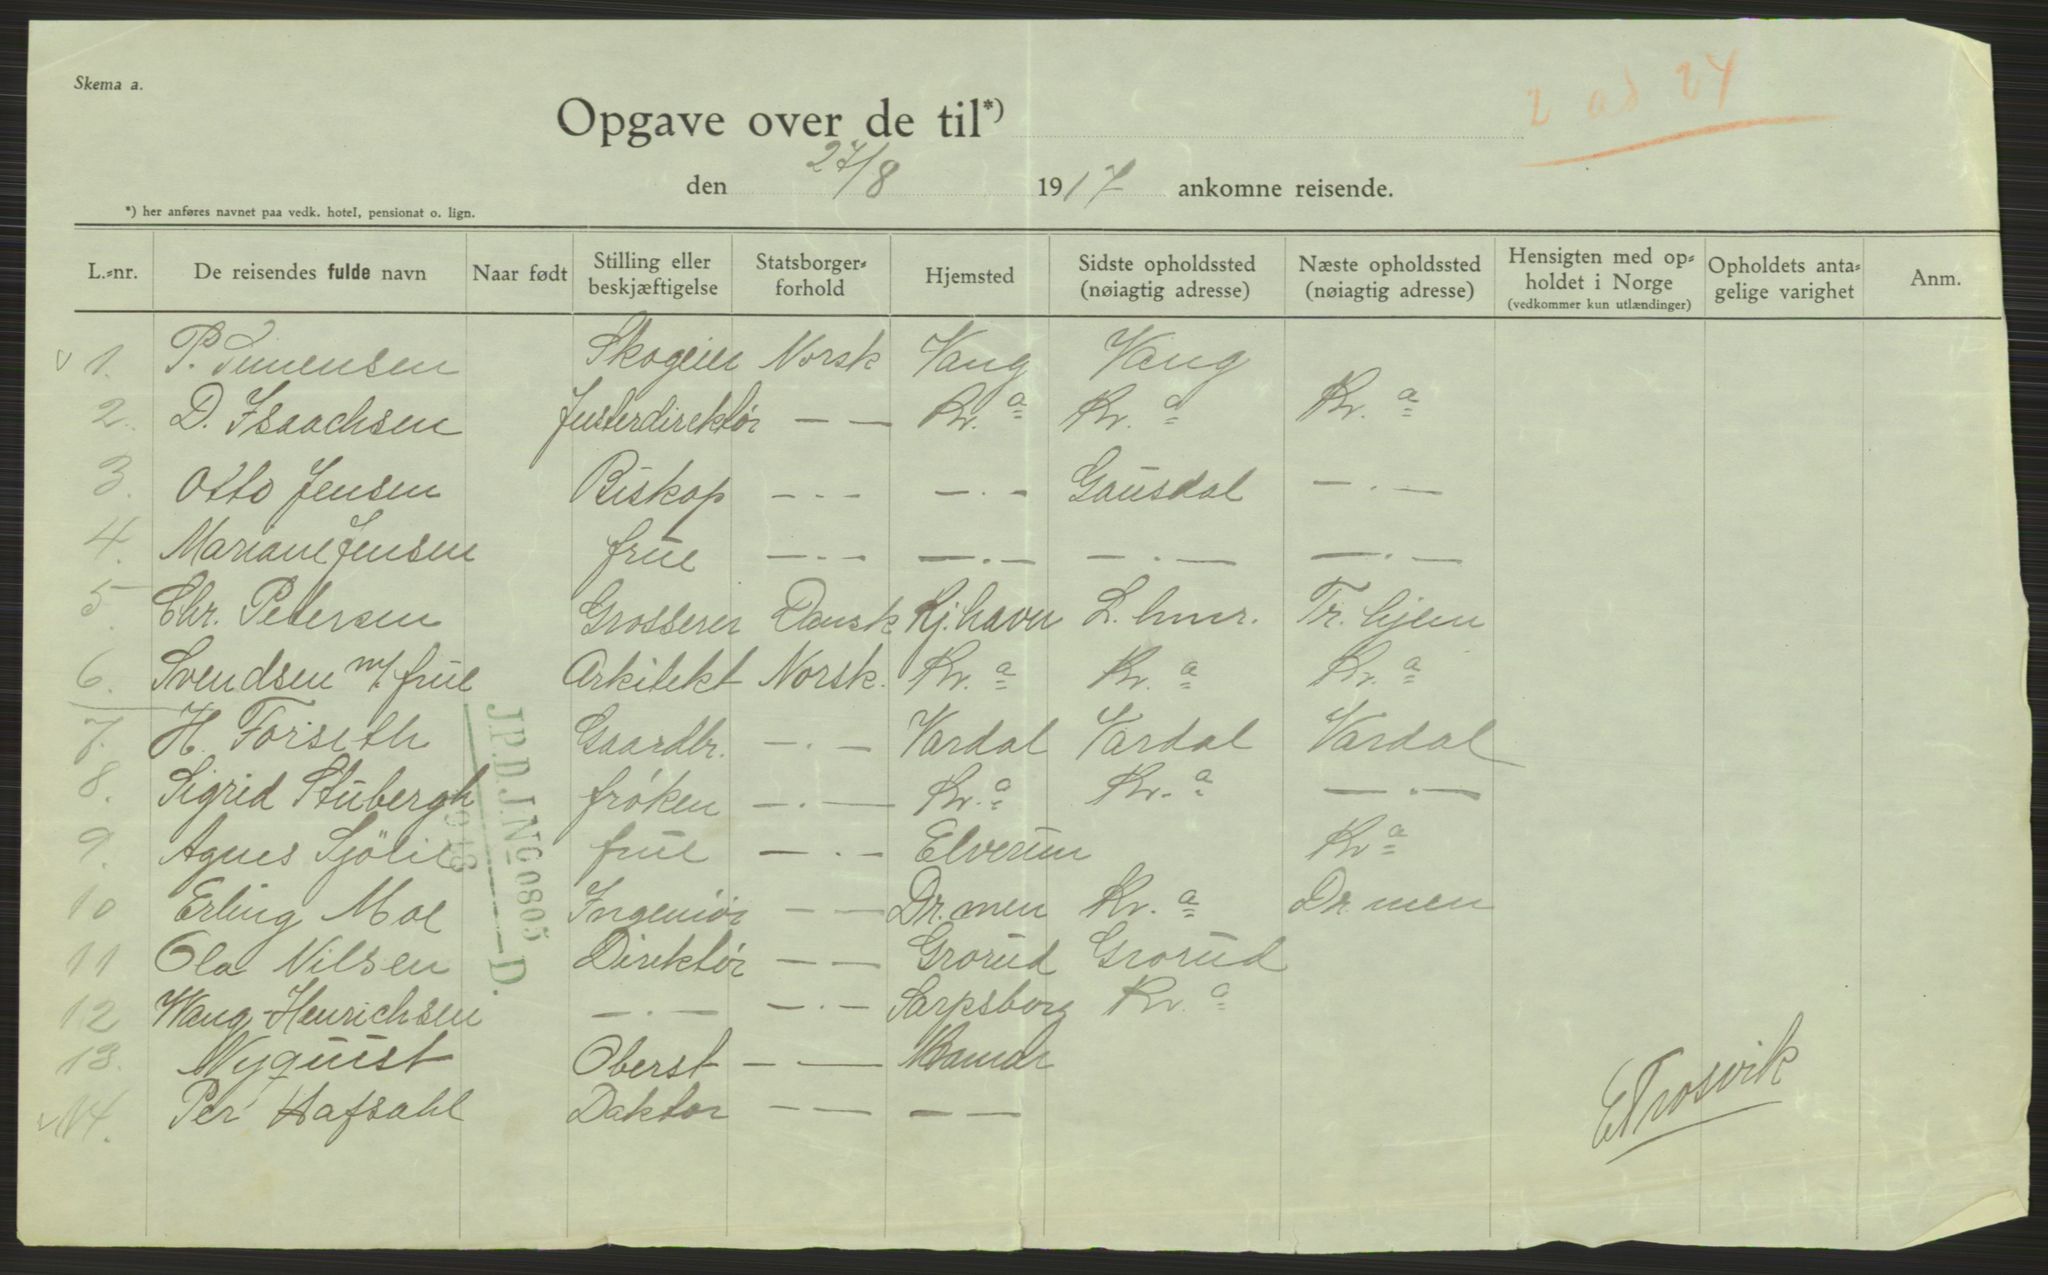 Skema a.
Opgave over de til*)
2 ad 24
den 27/8 1917 ankomne reisende.
*) her anføres navnet paa vedk. hotel, pensionat o. lign.
L.-nr. De reisendes fulde navn Naar født Stilling eller beskjæftigelse Statsborger-forhold Hjemsted Sidste opholdssted (nøiagtig adresse) Næste opholdssted (nøiagtig adresse) Hensigten med op-holdet i Norge (vedkommer kun utlændinger) Opholdets anta-gelige varighet Anm.
v 1. P. Simensen Skogeier Norsk Vang Vang
2. D. Isaachsen Justerdirektör — — Kr.a Kr.a Kr.a
3. Otto Jensen Biskop — · — — · — Gausdal — · —
4. Mariane Jensen frue — · — — · — — · — — · —
5. Chr. Petersen Grosserer Dansk Kj.havn L.hmr. Tr.hjem
6. Svendsen m/ frue Arkitekt Norsk. Kr.a Kr.a Kr.a
7. H. Forseth Gaardbr. — · — Vardal Vardal Vardal
8. Sigrid Stubergh fröken — · — Kr.a Kr.a — · —
9. Agnes frue — · — Elverum Kr.a
10 Erling Moe Ingeniör — — Dr.men Kr.a Dr.men
11 Ola Nilsen Direktör — — Grorud Grorud
12 Wang-Henrichsen — · — — · — Sarpsborg Kr.a
13. Nyquist Oberst — — Hamar
v 14. Per Hafsahl Doktor — — — —
J.P.D.J.No 0805 D.
1918
ETrosvik